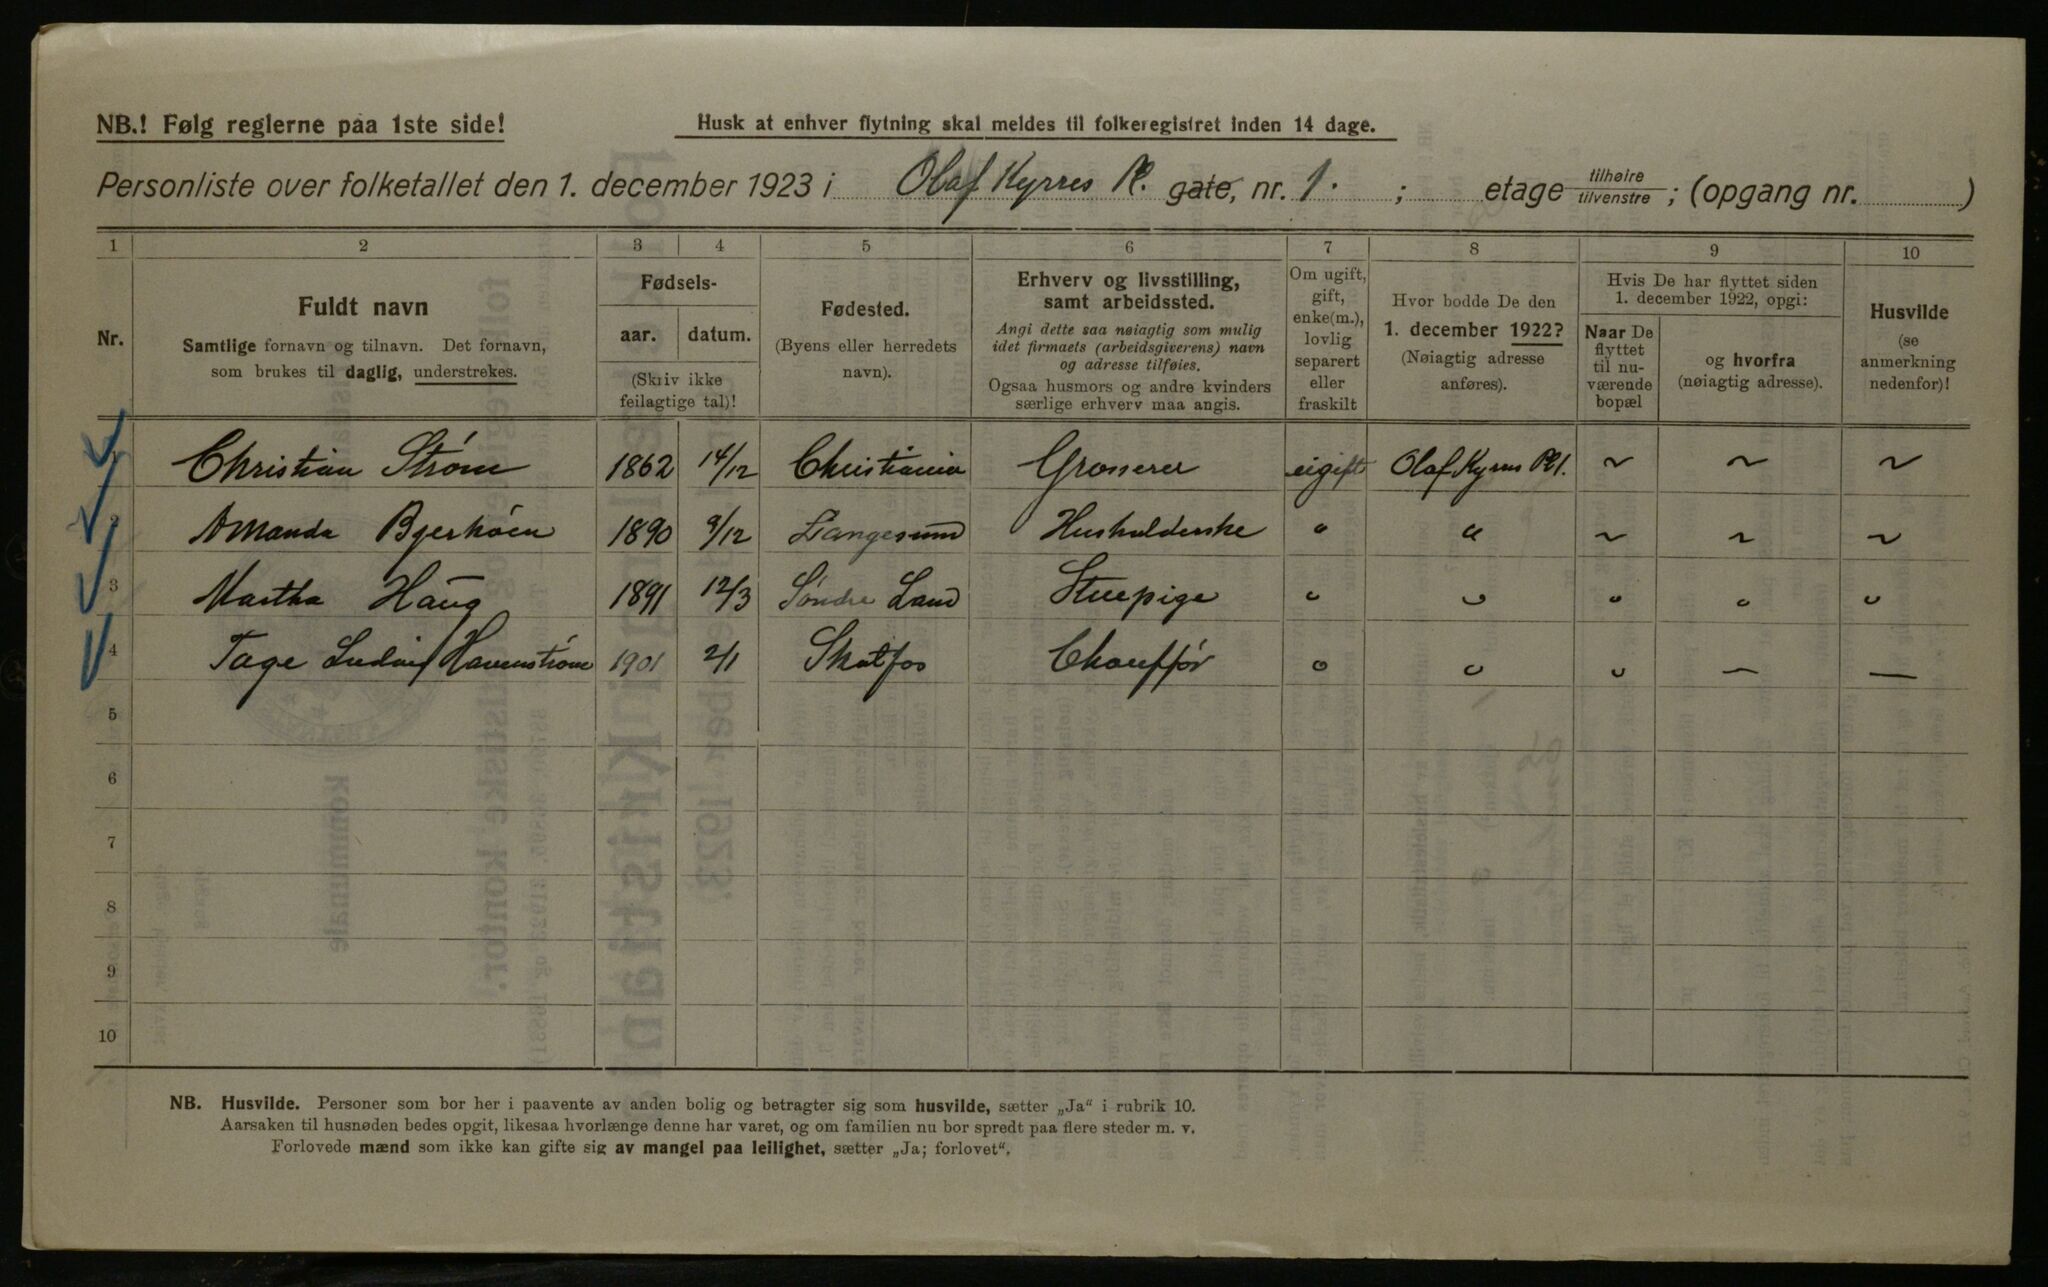 NB.! Følg reglerne paa 1ste side!
Husk at enhver flytning skal meldes til folkeregistret inden 14 dage.
Personliste over folketallet den 1. december 1923 i Olaf Kyrres Pl. gate, nr. 1. ; etage tilhøire tilvenstre ; (opgang nr. )
1 2 3 4 5 6 7 8 9 10
Nr.
Fuldt navn
Samtlige fornavn og tilnavn. Det fornavn,
som brukes til daglig, understrekes.
Fødsels-
aar. datum.
(Skriv ikke
feilagtige tal)!
Fødested.
(Byens eller herredets
navn).
Erhverv og livsstilling,
samt arbeidssted.
Angi dette saa nøiagtig som mulig
idet firmaets (arbeidsgiverens) navn
og adresse tilføies.
Ogsaa husmors og andre kvinders
særlige erhverv maa angis.
Om ugift,
gift,
enke(m.),
lovlig
separert
eller
fraskilt
Hvor bodde De den
1. december 1922?
(Nøiagtig adresse
anføres).
Hvis De har flyttet siden
1. december 1922, opgi:
Naar De
flyttet
til nu-
værende
bopæl
og hvorfra
(nøiagtig adresse).
Husvilde
(se
anmerkning
nedenfor)!
1 Christian Strøm 1862 14/12 Christiania Grosserer ugift Olaf Kyrres Pl 1. ~ ~ ~
2 Amanda Bjerkøen 1890 9/12 Langesund Husholderske " " ~ ~ ~
3 Martha Haug 1891 12/3 Søndre Land Stuepige " " " " "
4 Tage Ludvig Havenstrøm 1901 2/1 Skotfos Chauffør " " " — —
5
6
7
8
9
10
NB. Husvilde. Personer som bor her i paavente av anden bolig og betragter sig som husvilde, sætter „Ja“ i rubrik 10.
Aarsaken til husnøden bedes opgit, likesaa hvorlænge denne har varet, og om familien nu bor spredt paa flere steder m. v.
Forlovede mænd som ikke kan gifte sig av mangel paa leilighet, sætter „Ja; forlovet“.